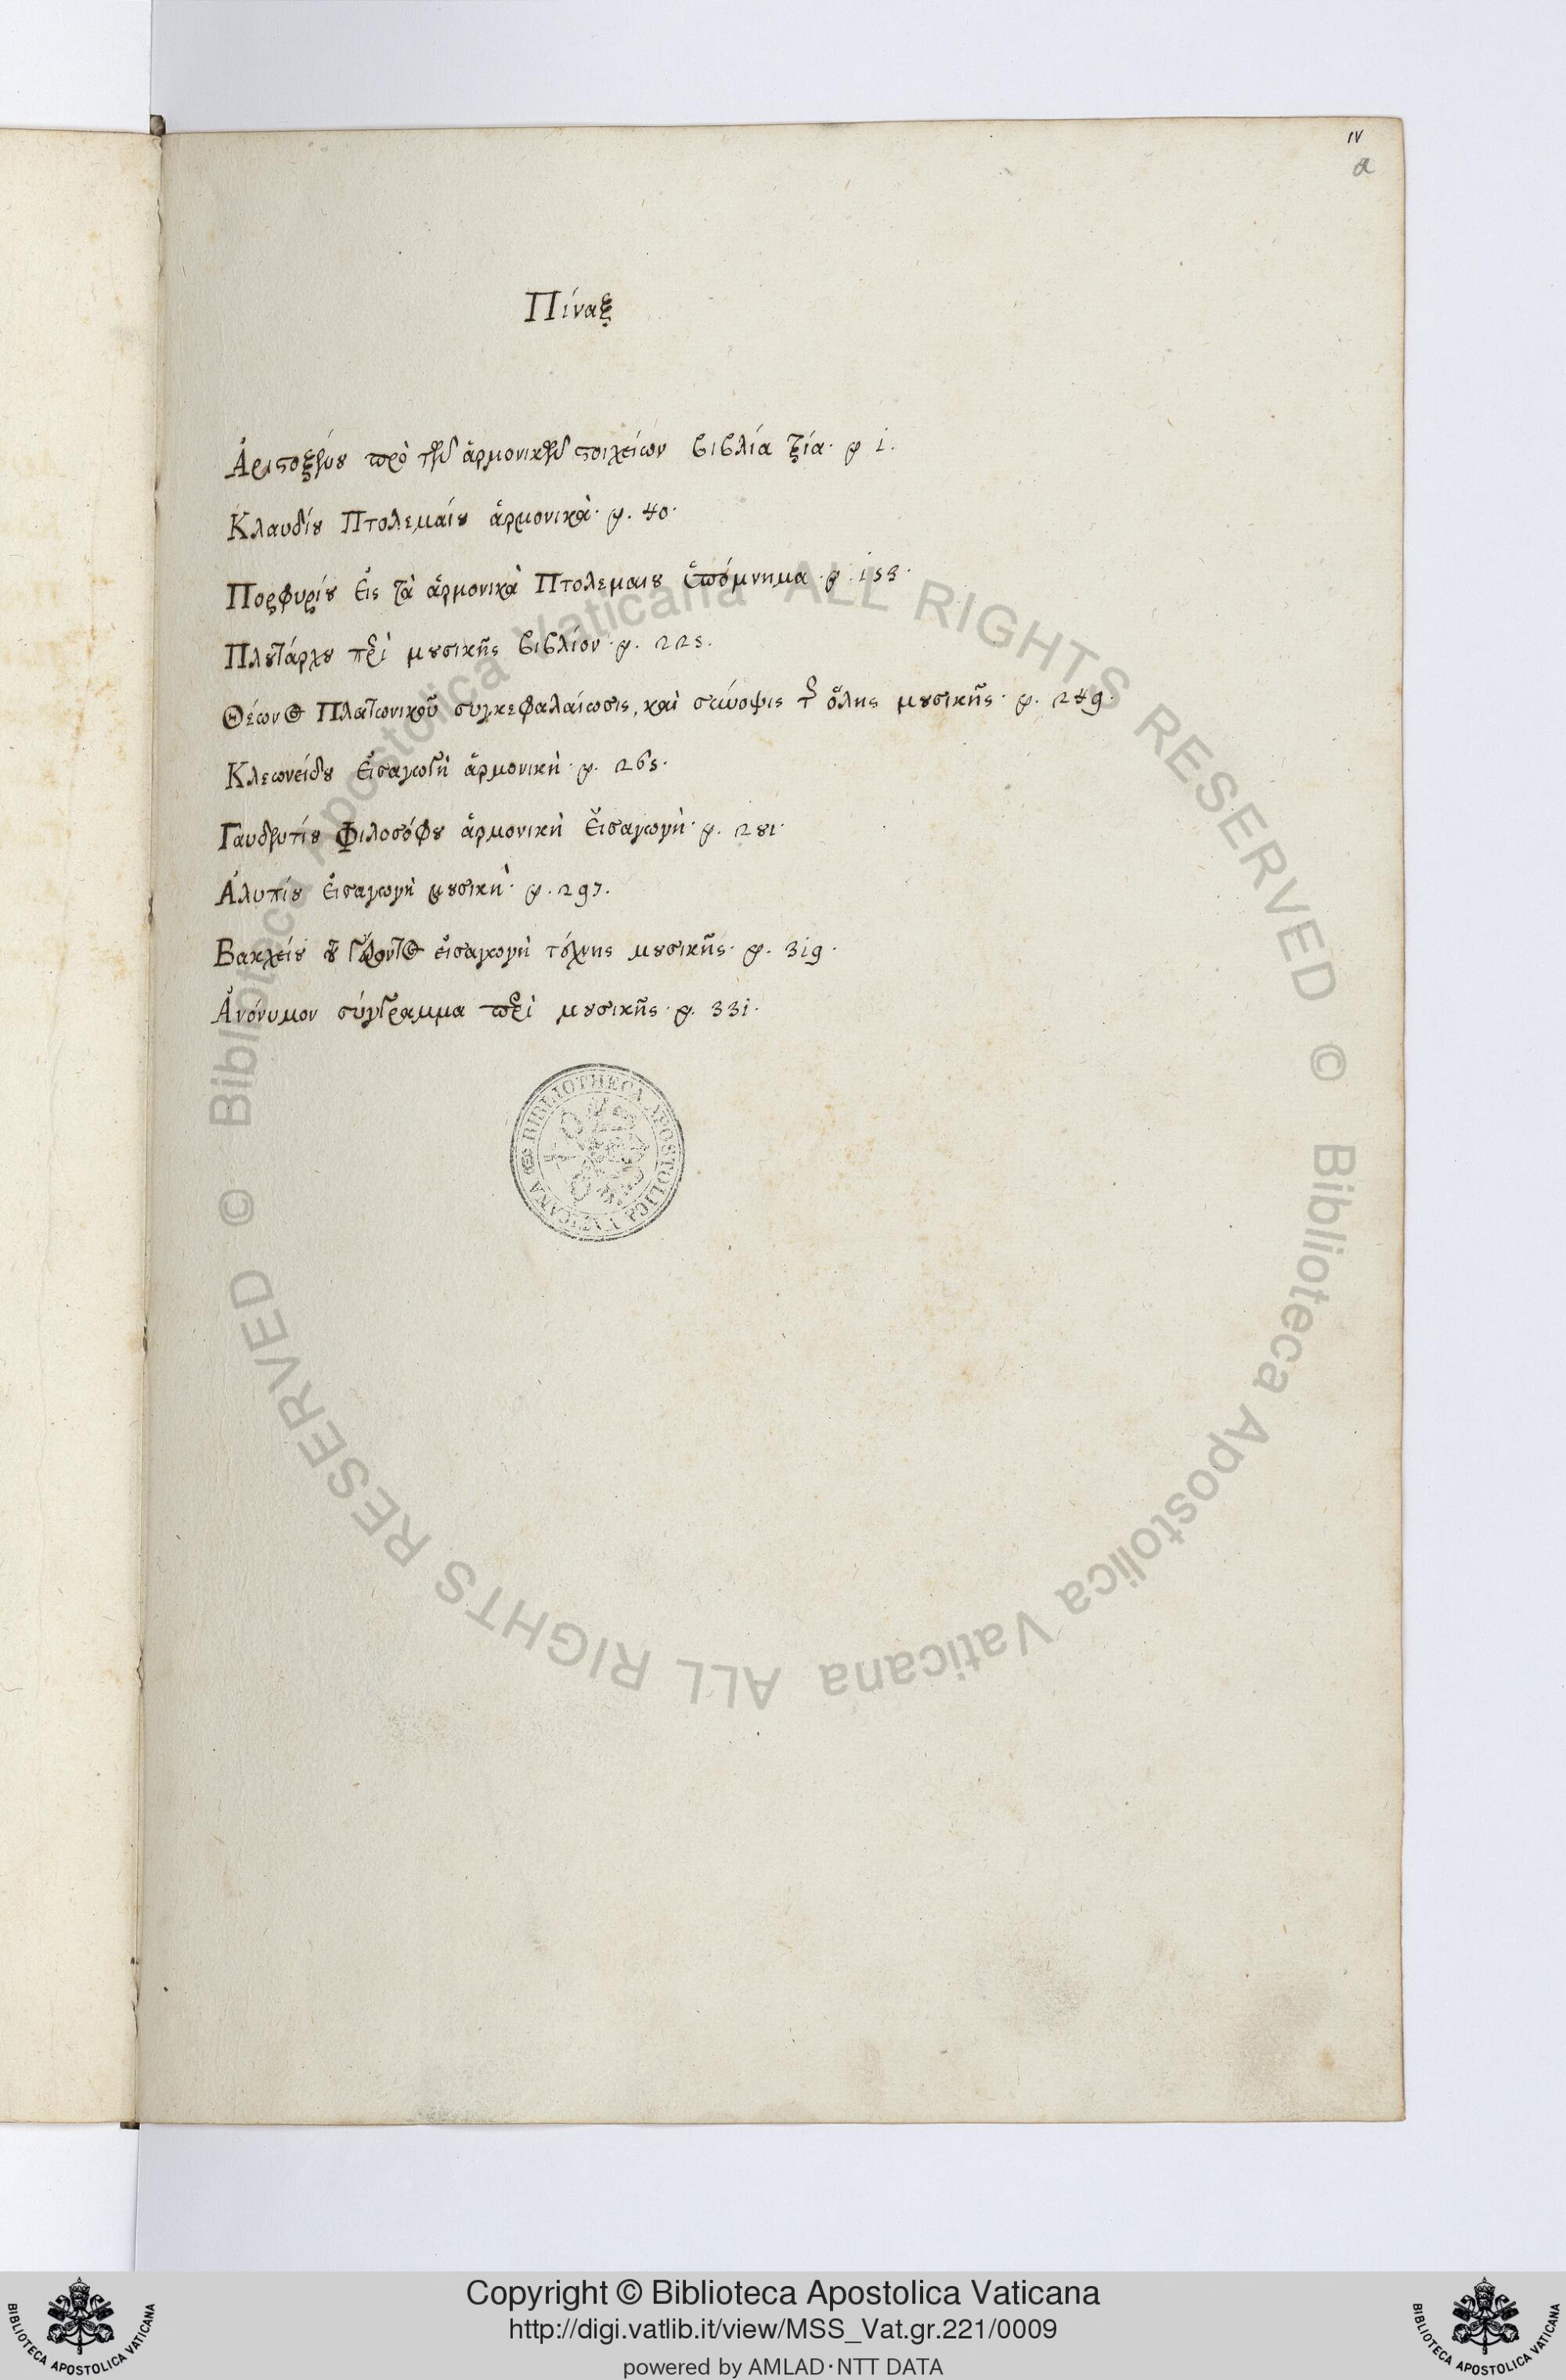 IV
a
Πίναξ
Ἀριστοξένου πρὸ τῶν ἁρμονικῶν στοιχείων βιβλία τρία· φ 1.
Κλαυδίου Πτολεμαίου ἁρμονικὰ· φ. 40·
Πορφυρίου εἰς τὰ ἁρμονικὰ Πτολεμαιου ὑπόμνημα· φ. 153·
Πλουτάρχου περὶ μουσικῆς βιβλίον· φ. 225.
Θέωνος Πλατωνικοῦ συγκεφαλαίωσις, καὶ σύνοψις τῆς ὅλης μουσικῆς· φ. 249·
Κλεωνείδου εἰσαγωγὴ ἁρμονικὴ· φ. 265·
Γαυδεντίου Φιλοσόφου ἁρμονικὴ εἰσαγωγὴ· φ. 281·
Ἀλυπίου εἰσαγωγὴ μουσικὴ· φ. 297.
Βακχείου τοῦ Γέροντος εἰσαγωγὴ τέχνης μουσικῆς· φ. 319·
Ἀνόνυμον σύγγραμμα περὶ μουσικῆς· φ. 331·
BIBLIOTHECA APOSTOLICA VATICANA
© Biblioteca Apostolica Vaticana ALL RIGHTS RESERVED © Biblioteca Apostolica Vaticana ALL RIGHTS RESERVED
Copyright © Biblioteca Apostolica Vaticana
http://digi.vatlib.it/view/MSS_Vat.gr.221/0009
powered by AMLAD·NTT DATA
BIBLIOTECA APOSTOLICA VATICANA
BIBLIOTECA APOSTOLICA VATICANA